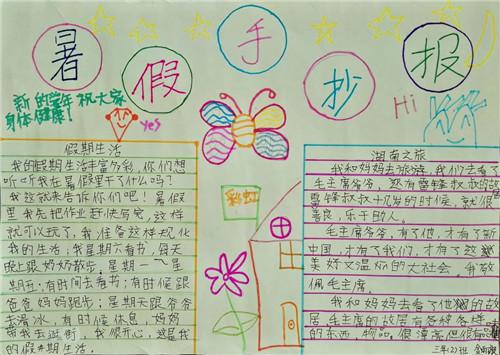 暑假手抄报
新的学年祝大家
身体健康！
yes
Hi
假期生活
我的假期生活丰富多彩，你们想
听听我在暑假里干了什么吗？
我这就来告诉你们吧！暑假
里我先把作业赶快写完，这样
就可以玩了，我准备这样规化
我的生活：我星期六看书，每天
晚上跟奶奶散步。星期一～星
期五：有时间去看书；有时候跟
爸爸妈妈跑步；星期天跟爷爷
去滑冰，有时候休息，妈妈
带我去逛街，我很开心，这是我
的假期生活。
彩虹
湖南之旅
我和妈妈去旅游，我们去看了
毛主席爷爷，还有雷锋叔叔的
雷锋叔叔十几岁的时候，就很
善良，乐于助人。
毛主席爷爷，有了他，才有了新
中国，才有了我们，才有了这
美好又温际的大社会。我敬
佩毛主席。
我和妈妈去看了他的故
居毛主席的故居有各种各样
的东西，物品，很漂亮但很
三年(2)班